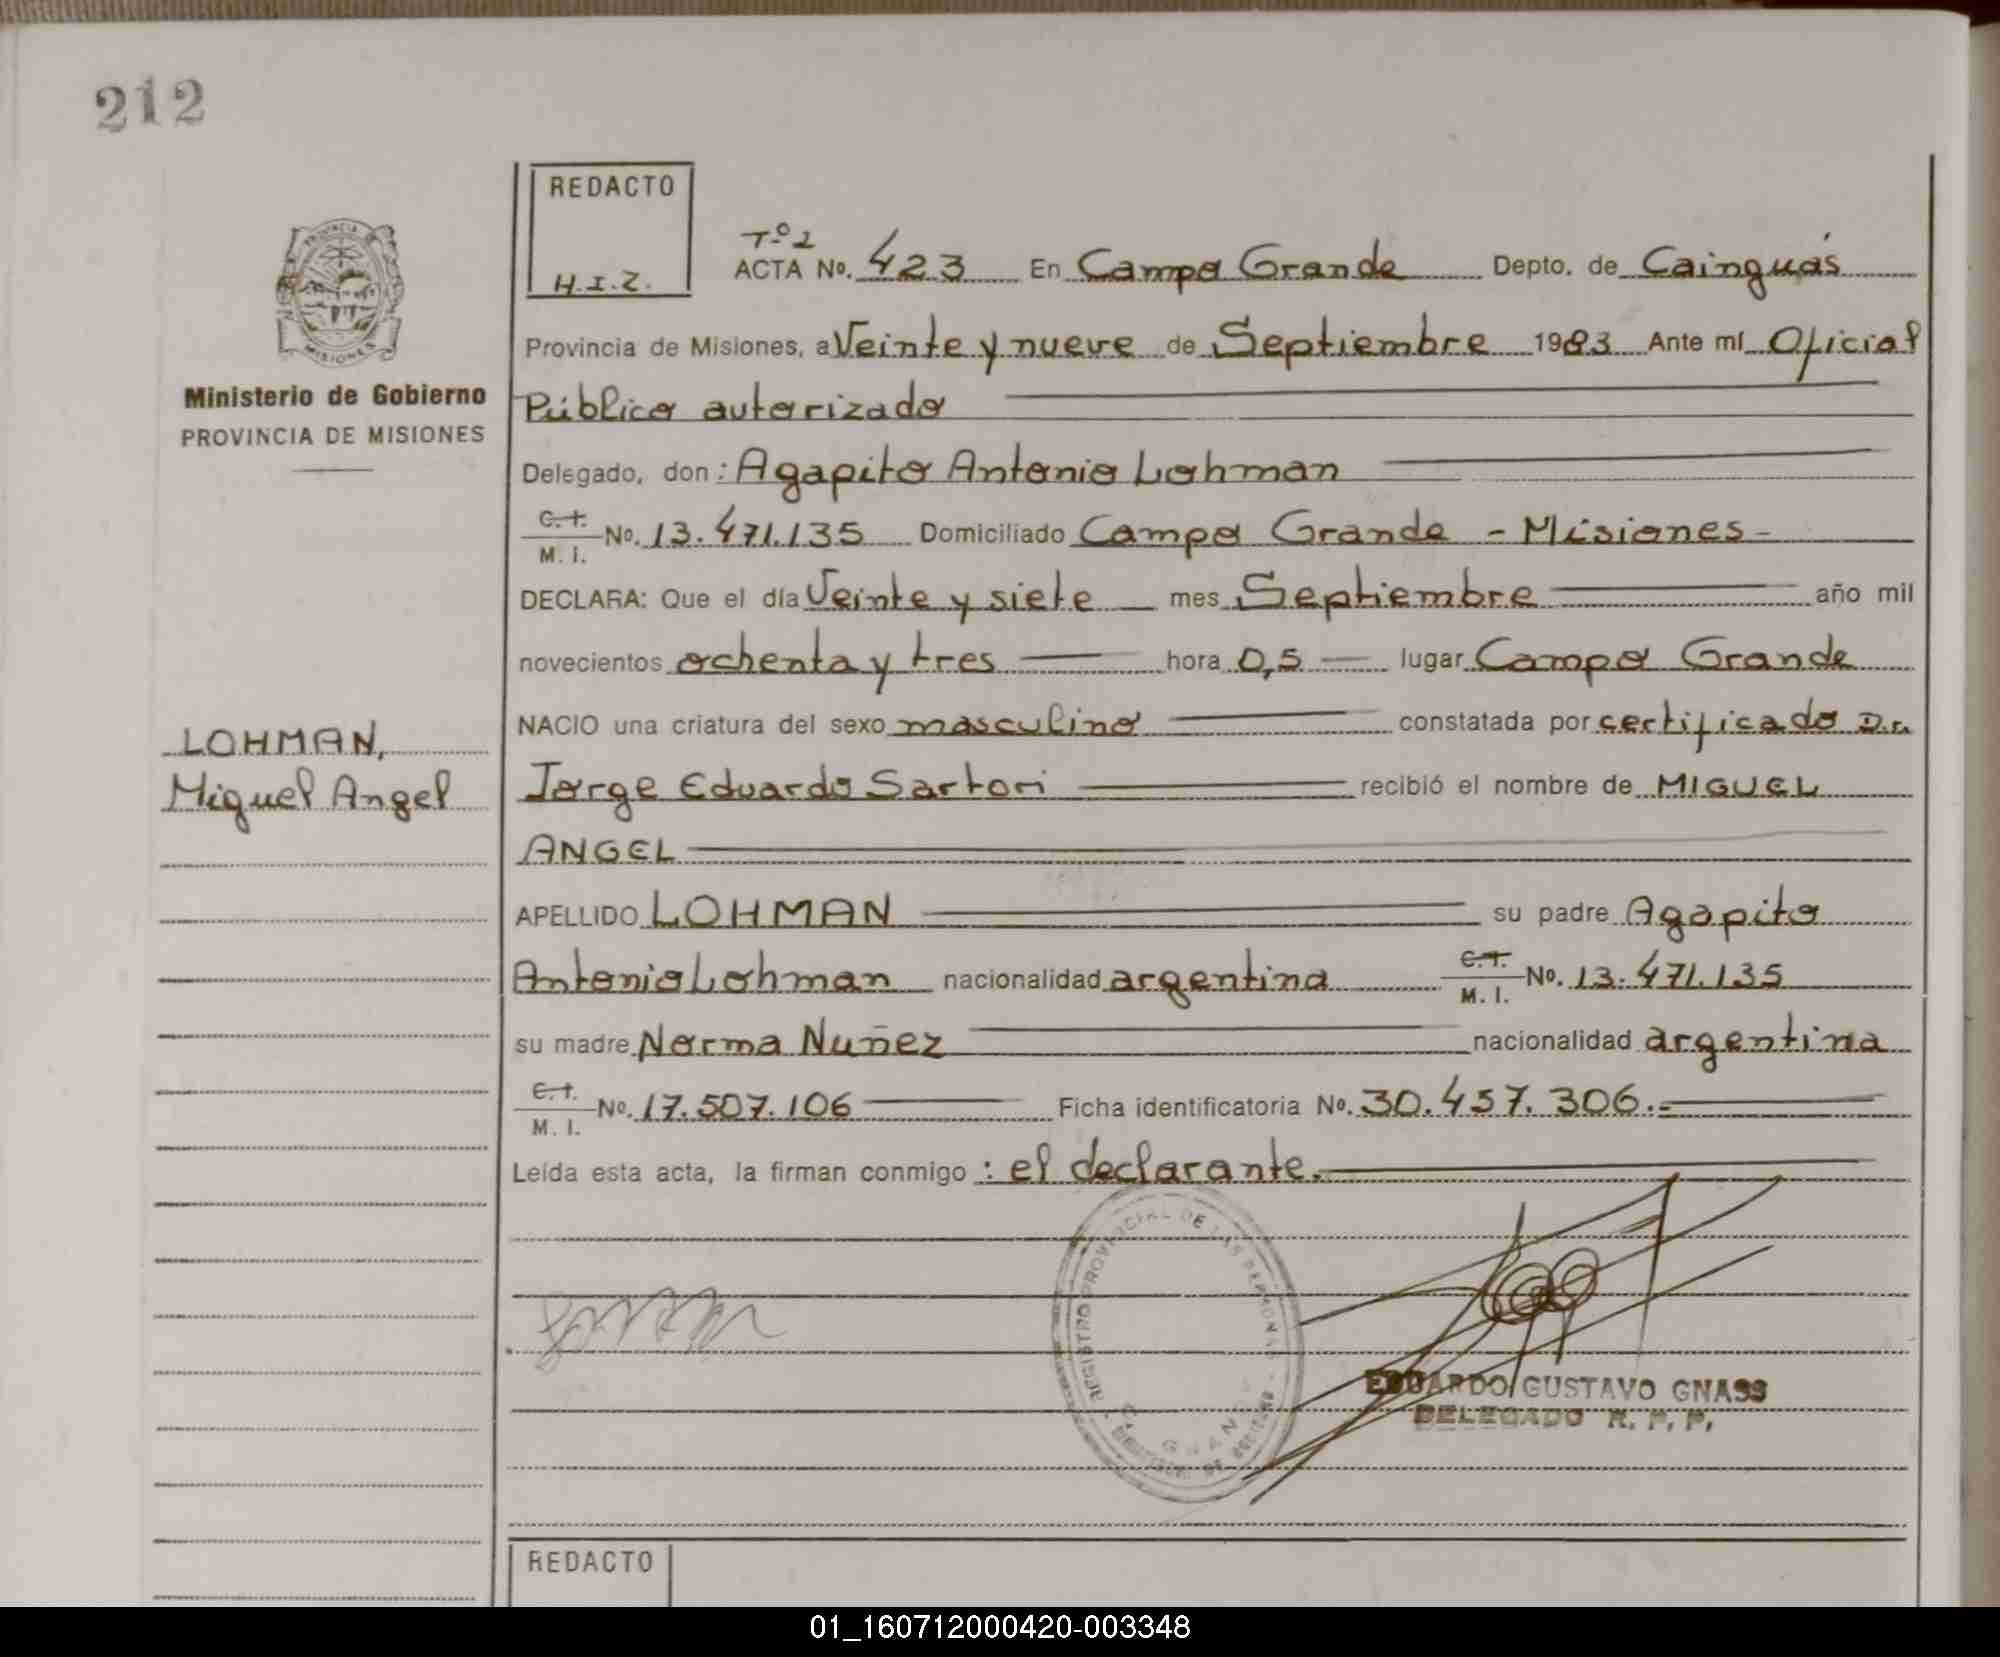 212
REDACTO
H.I.Z.
PROVINCIA DE
MISIONES
Ministerio de Gobierno
PROVINCIA DE MISIONES
Tº 2
ACTA No. 423 En Campo Grande Depto. de Cainguás
Provincia de Misiones, a Veinte y nueve de Septiembre 1983 Ante mí Oficial
Público autorizado
Delegado, don: Agapito Antonio Lohman
C.I.
M. I. No. 13.471.135 Domiciliado Campo Grande - Misiones -
DECLARA: Que el día Veinte y siete mes Septiembre año mil
novecientos ochenta y tres hora 0,5 lugar Campo Grande
NACIO una criatura del sexo masculino constatada por certificado Dr.
LOHMAN,
Miguel Angel
Jorge Eduardo Sartori recibió el nombre de MIGUEL
ANGEL
APELLIDO LOHMAN su padre Agapito
Antonio Lohman nacionalidad argentina C.I. M. I. No. 13.471.135
su madre Norma Nuñez nacionalidad argentina
C.I.
M. I. No. 17.507.106 Ficha identificatoria No. 30.457.306.=
Leída esta acta, la firman conmigo: el declarante.
REGISTRO PROVINCIAL DE LAS PERSONAS
EDUARDO GUSTAVO GNASS
DELEGADO R. P. P.
REDACTO
01_160712000420-003348